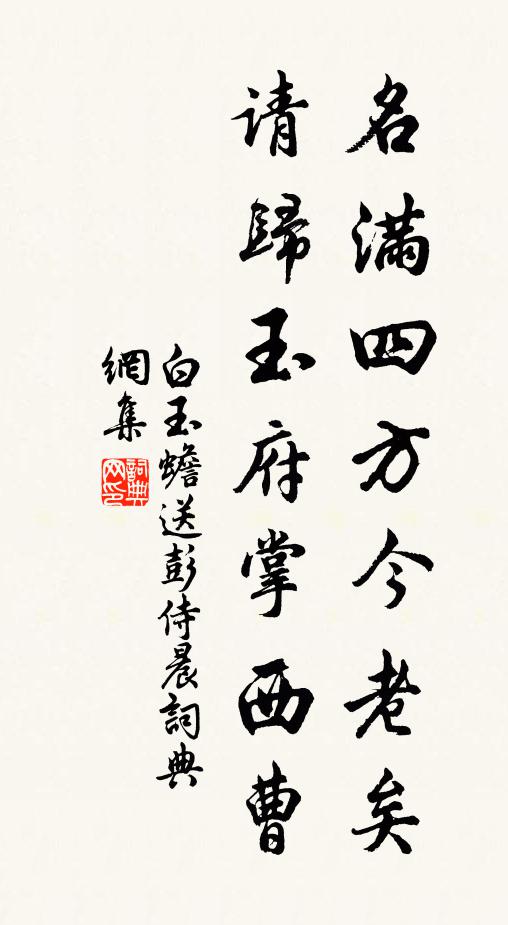 名满四方今老矣
请歸玉府掌西曹
白玉蟾送彭侍晨詞典
網集
詞典网印